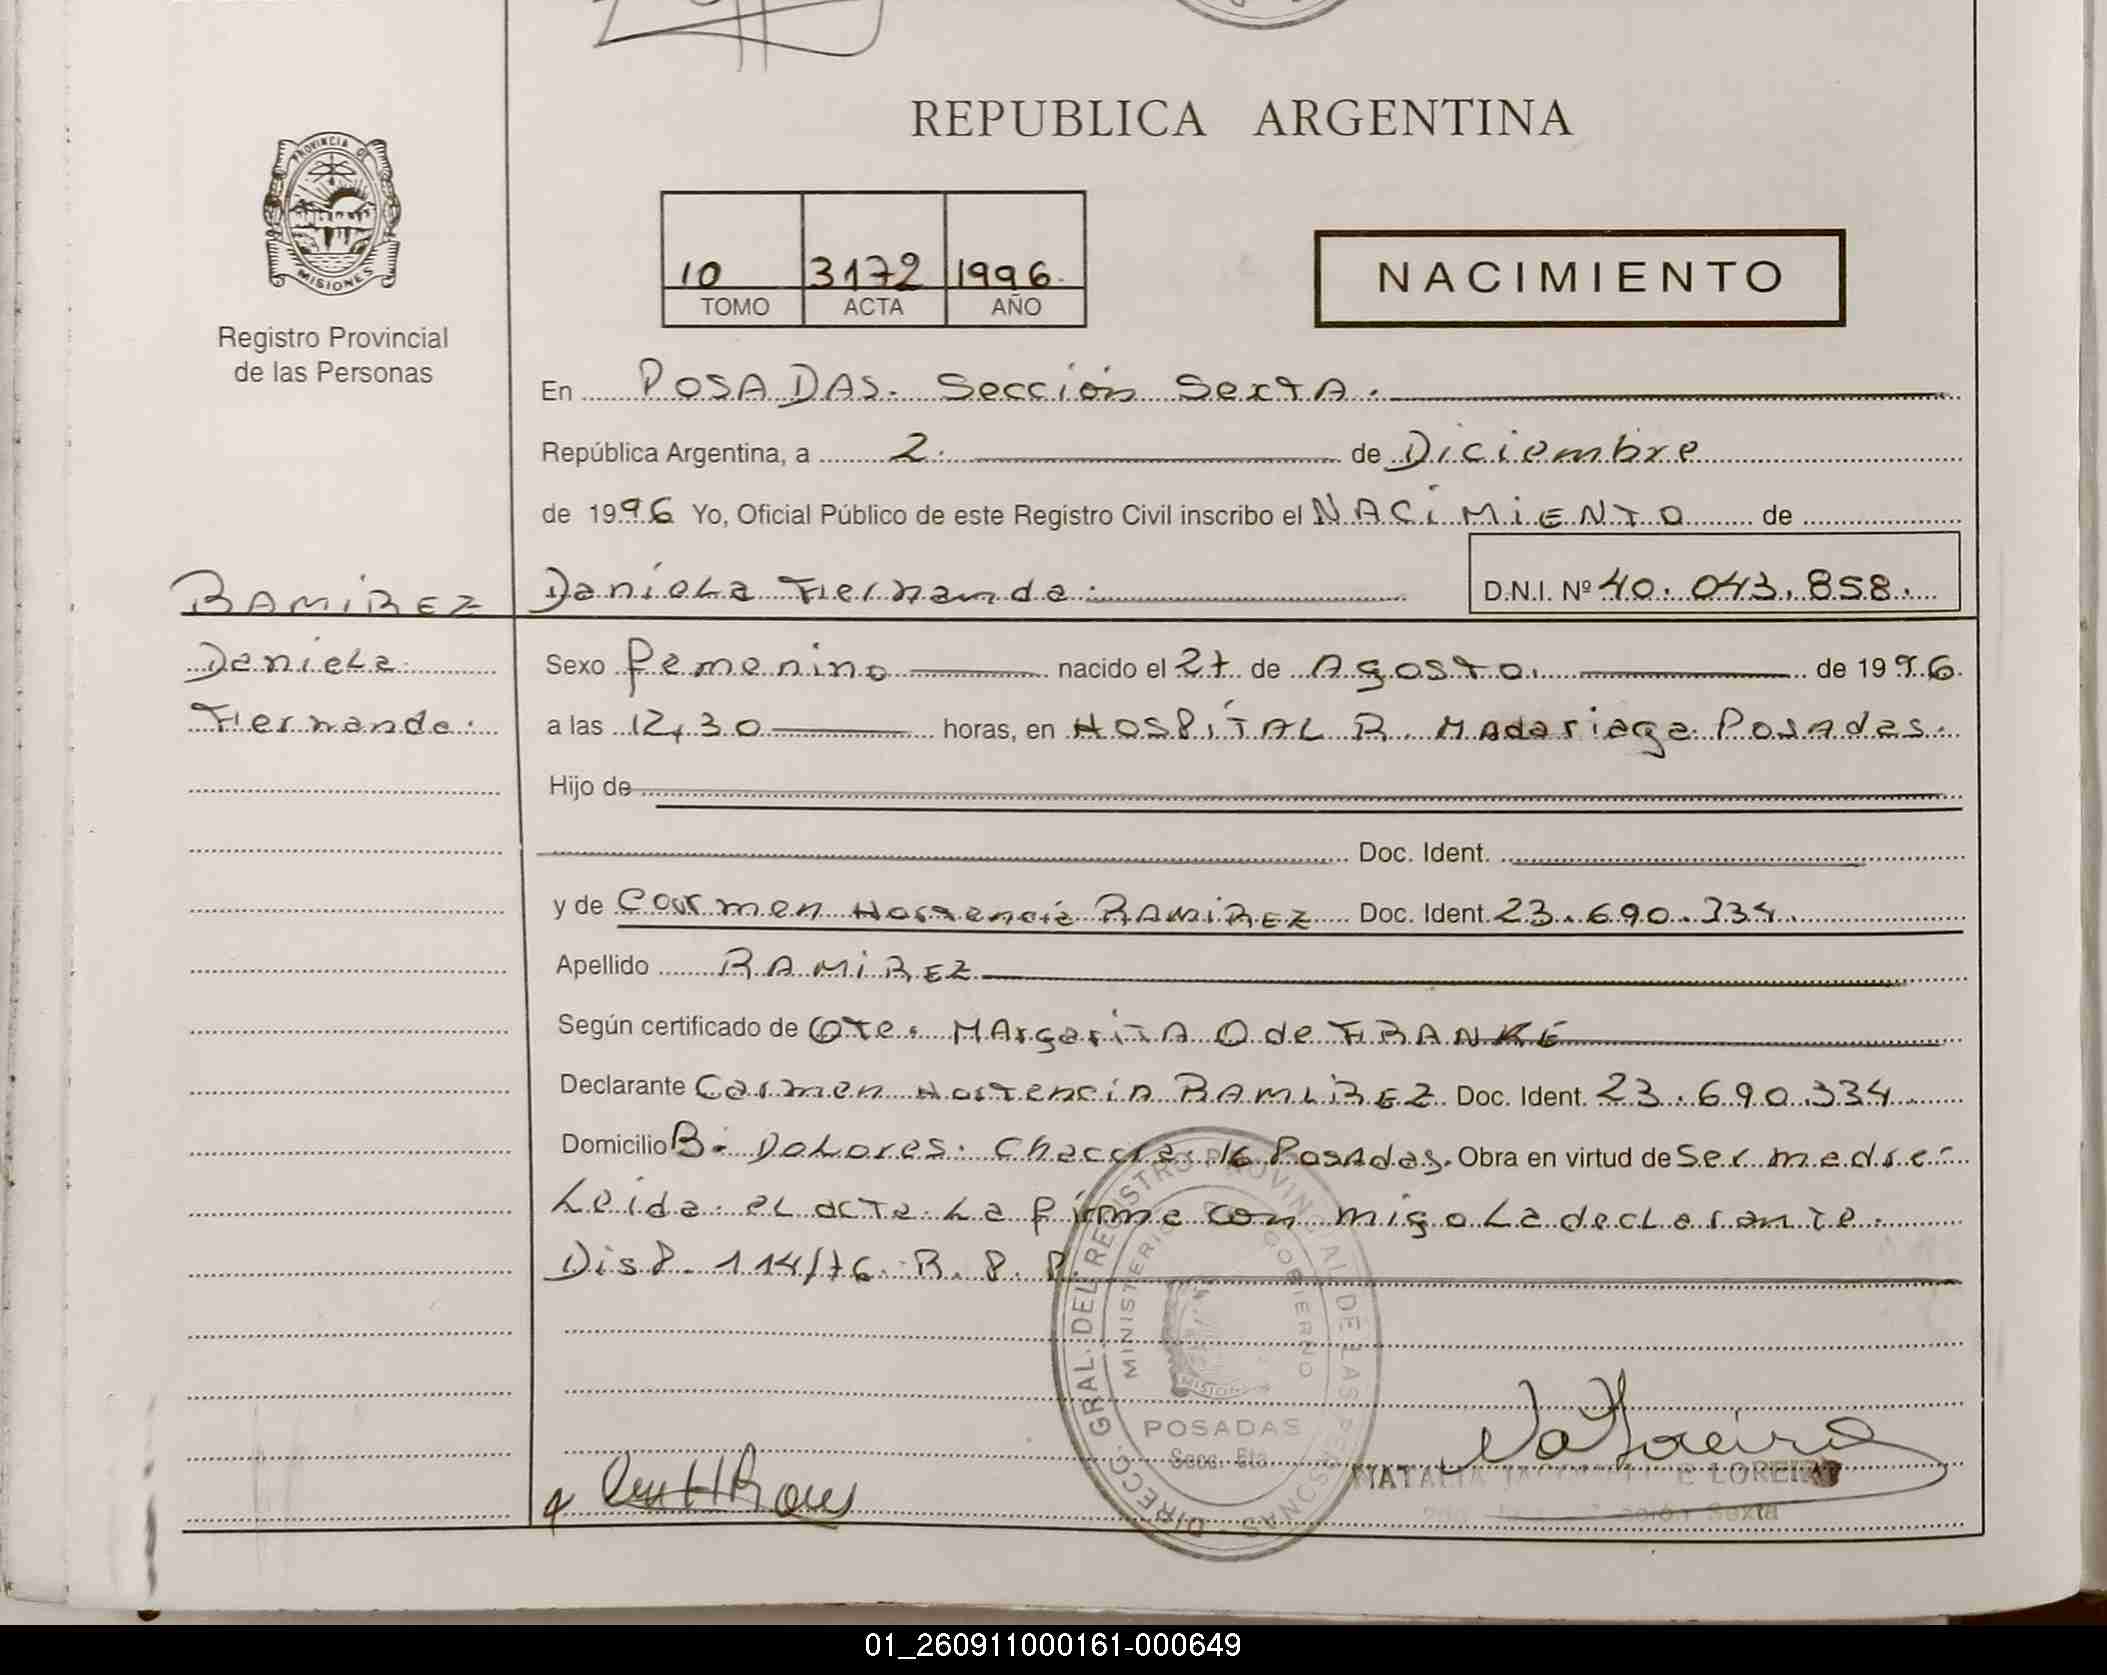 REPUBLICA ARGENTINA
PROVINCIA DE
MISIONES
Registro Provincial
de las Personas
10 3172 1996.
TOMO ACTA AÑO
NACIMIENTO
En POSADAS. Sección Sexta.
República Argentina, a 2. de Diciembre
de 1996 Yo, Oficial Público de este Registro Civil inscribo el NACIMIENTO de
RAMIREZ Daniela Fernanda. D.N.I. Nº 40.043.858.
Daniela Sexo femenino nacido el 27 de Agosto. de 1996.
Fernanda. a las 12,30 horas, en HOSPITAL R. Madariaga Posadas.
Hijo de
Doc. Ident.
y de Carmen Hortencia RAMIREZ Doc. Ident. 23.690.334.
Apellido RAMIREZ
Según certificado de Ote. Margarita O de FRANKE
Declarante Carmen Hortencia RAMIREZ Doc. Ident. 23.690.334
Domicilio B. Dolores. Chacra. 16 Posadas. Obra en virtud de Ser madre.
Leida el acta La firma con migo La declarante.
Disp. 114/76 R.P.P.
DIRECC. GRAL. DEL REGISTRO PROVINCIAL DE LAS PERSONAS
MINISTERIO GOBIERNO
MISIONES
POSADAS
Secc. 6ta.
NATALIA LOREIRO
Sexta
01_260911000161-000649